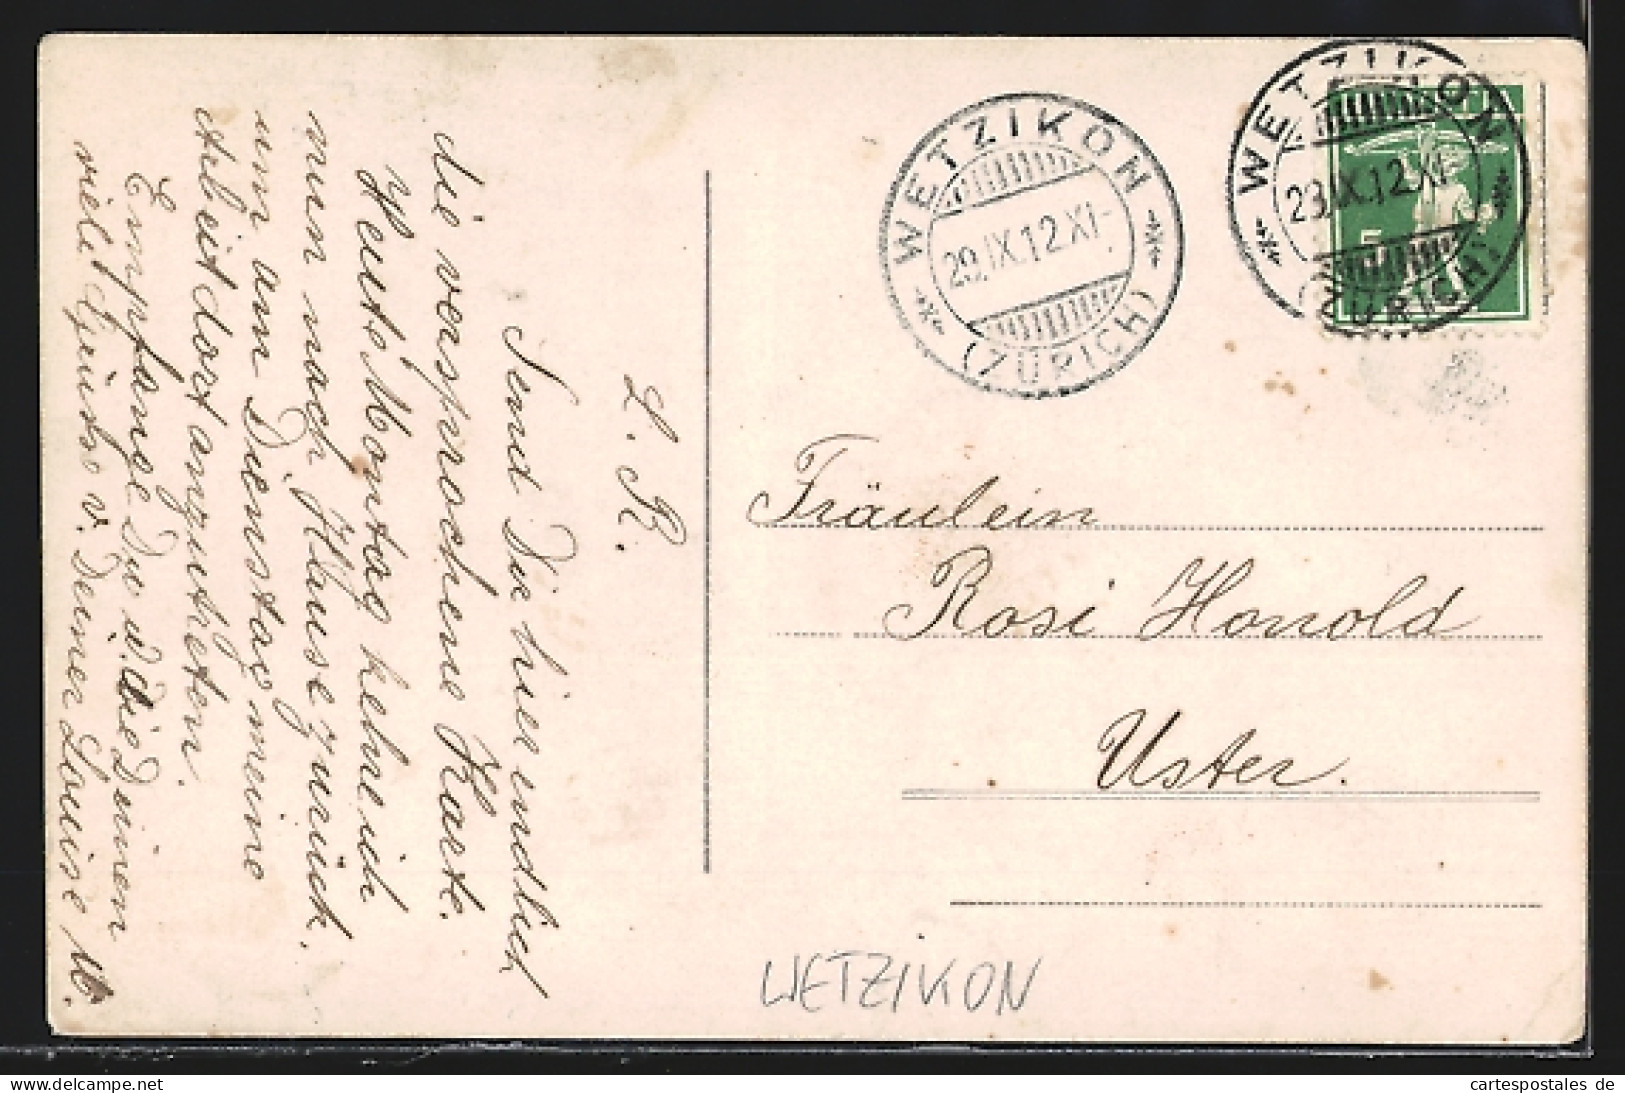 L. R.
Send Die hier endlich
die versprochene Karte.
Heute Montag kehre ich
nun nach Hause zurück,
um am Dienstag meine
Arbeit dort anzutreten.
Empfange Du u. die Deinen
viele Grüsse v. Deiner Louise W.
WETZIKON
29.IX.12.XI-
(ZÜRICH)
WETZIKON
29.IX.12.XI-
(ZÜRICH)
5
Fräulein
Rosi Honold
Uster.
WETZIKON
delcampe.net
cartespostales de